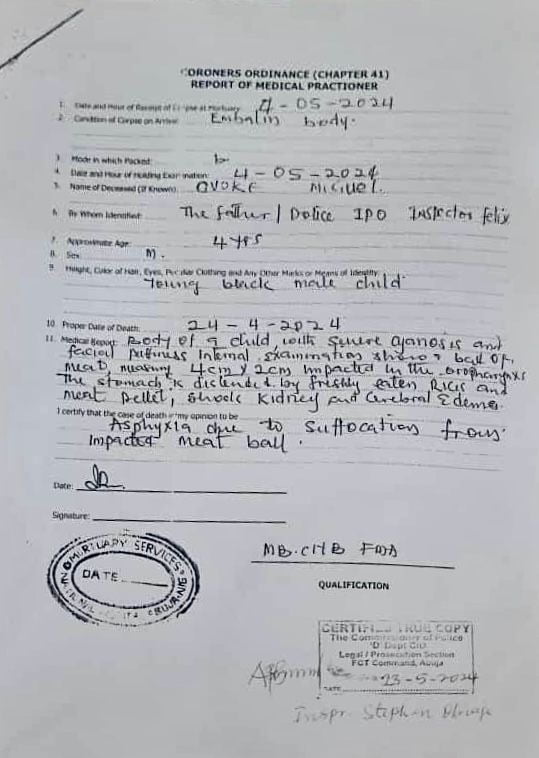 CORONERS ORDINANCE (CHAPTER 41)
REPORT OF MEDICAL PRACTIONER
1. Date and Hour of Receipt of Corpse at Mortuary: 4-05-2024
2. Condition of Corpse on Arrival: Embalm body.
3. Mode in which Packed:
4. Date and Hour of Holding Examination: 4-05-2024
5. Name of Deceased (If Known): OVOKE MIGUEL.
6. By Whom Identified: The father / Police IPO Inspector felix
7. Approximate Age: 4yrs
8. Sex: M.
9. Height, Color of Hair, Eyes, Peculiar Clothing and Any Other Marks or Means of Identity:
Young black male child
10. Proper Date of Death: 24-4-2024
11. Medical Report: Body of a child with severe cyanosis and
facial puffiness Internal examination shows ball of
meat, measuring 4cm x 2cm impacted in the oropharynxs
The stomach is distended by freshly eaten Rice and
meat pellet, shock kidney and Cerebral Edema
I certify that the case of death in my opinion to be
Asphyxia due to suffocation from
Impacted meat ball.
Date:
Signature:
MORTUARY SERVICES
DATE
MB.CHB
QUALIFICATION
CERTIFIED TRUE COPY
The Commissioner of Police
'D' Dept CID
Legal / Prosecution Section
FCT Command, Abuja
DATE 23-5-2024
Inspr. Stephen